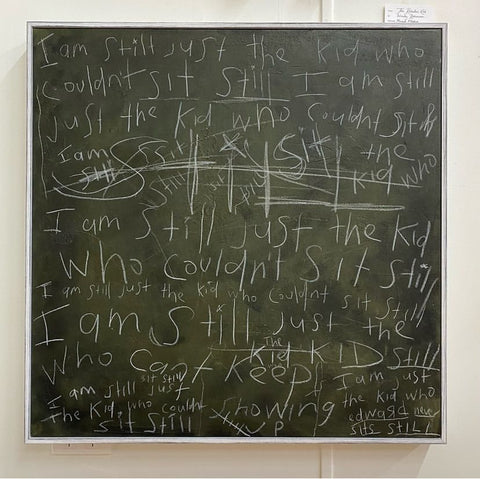 I am still just the kid who
couldn't sit still I am still
just the kid who couldnt sit
I am still sit the
kid who
I am still just the kid
who couldn't sit still
I am still just the kid who couldnt sit still
I am still just the
The
who can't keep kid KID still
sit still
I am still just
I am just
the kid, who couldnt
showing
the kid who
sit still
up
edward never
sits still